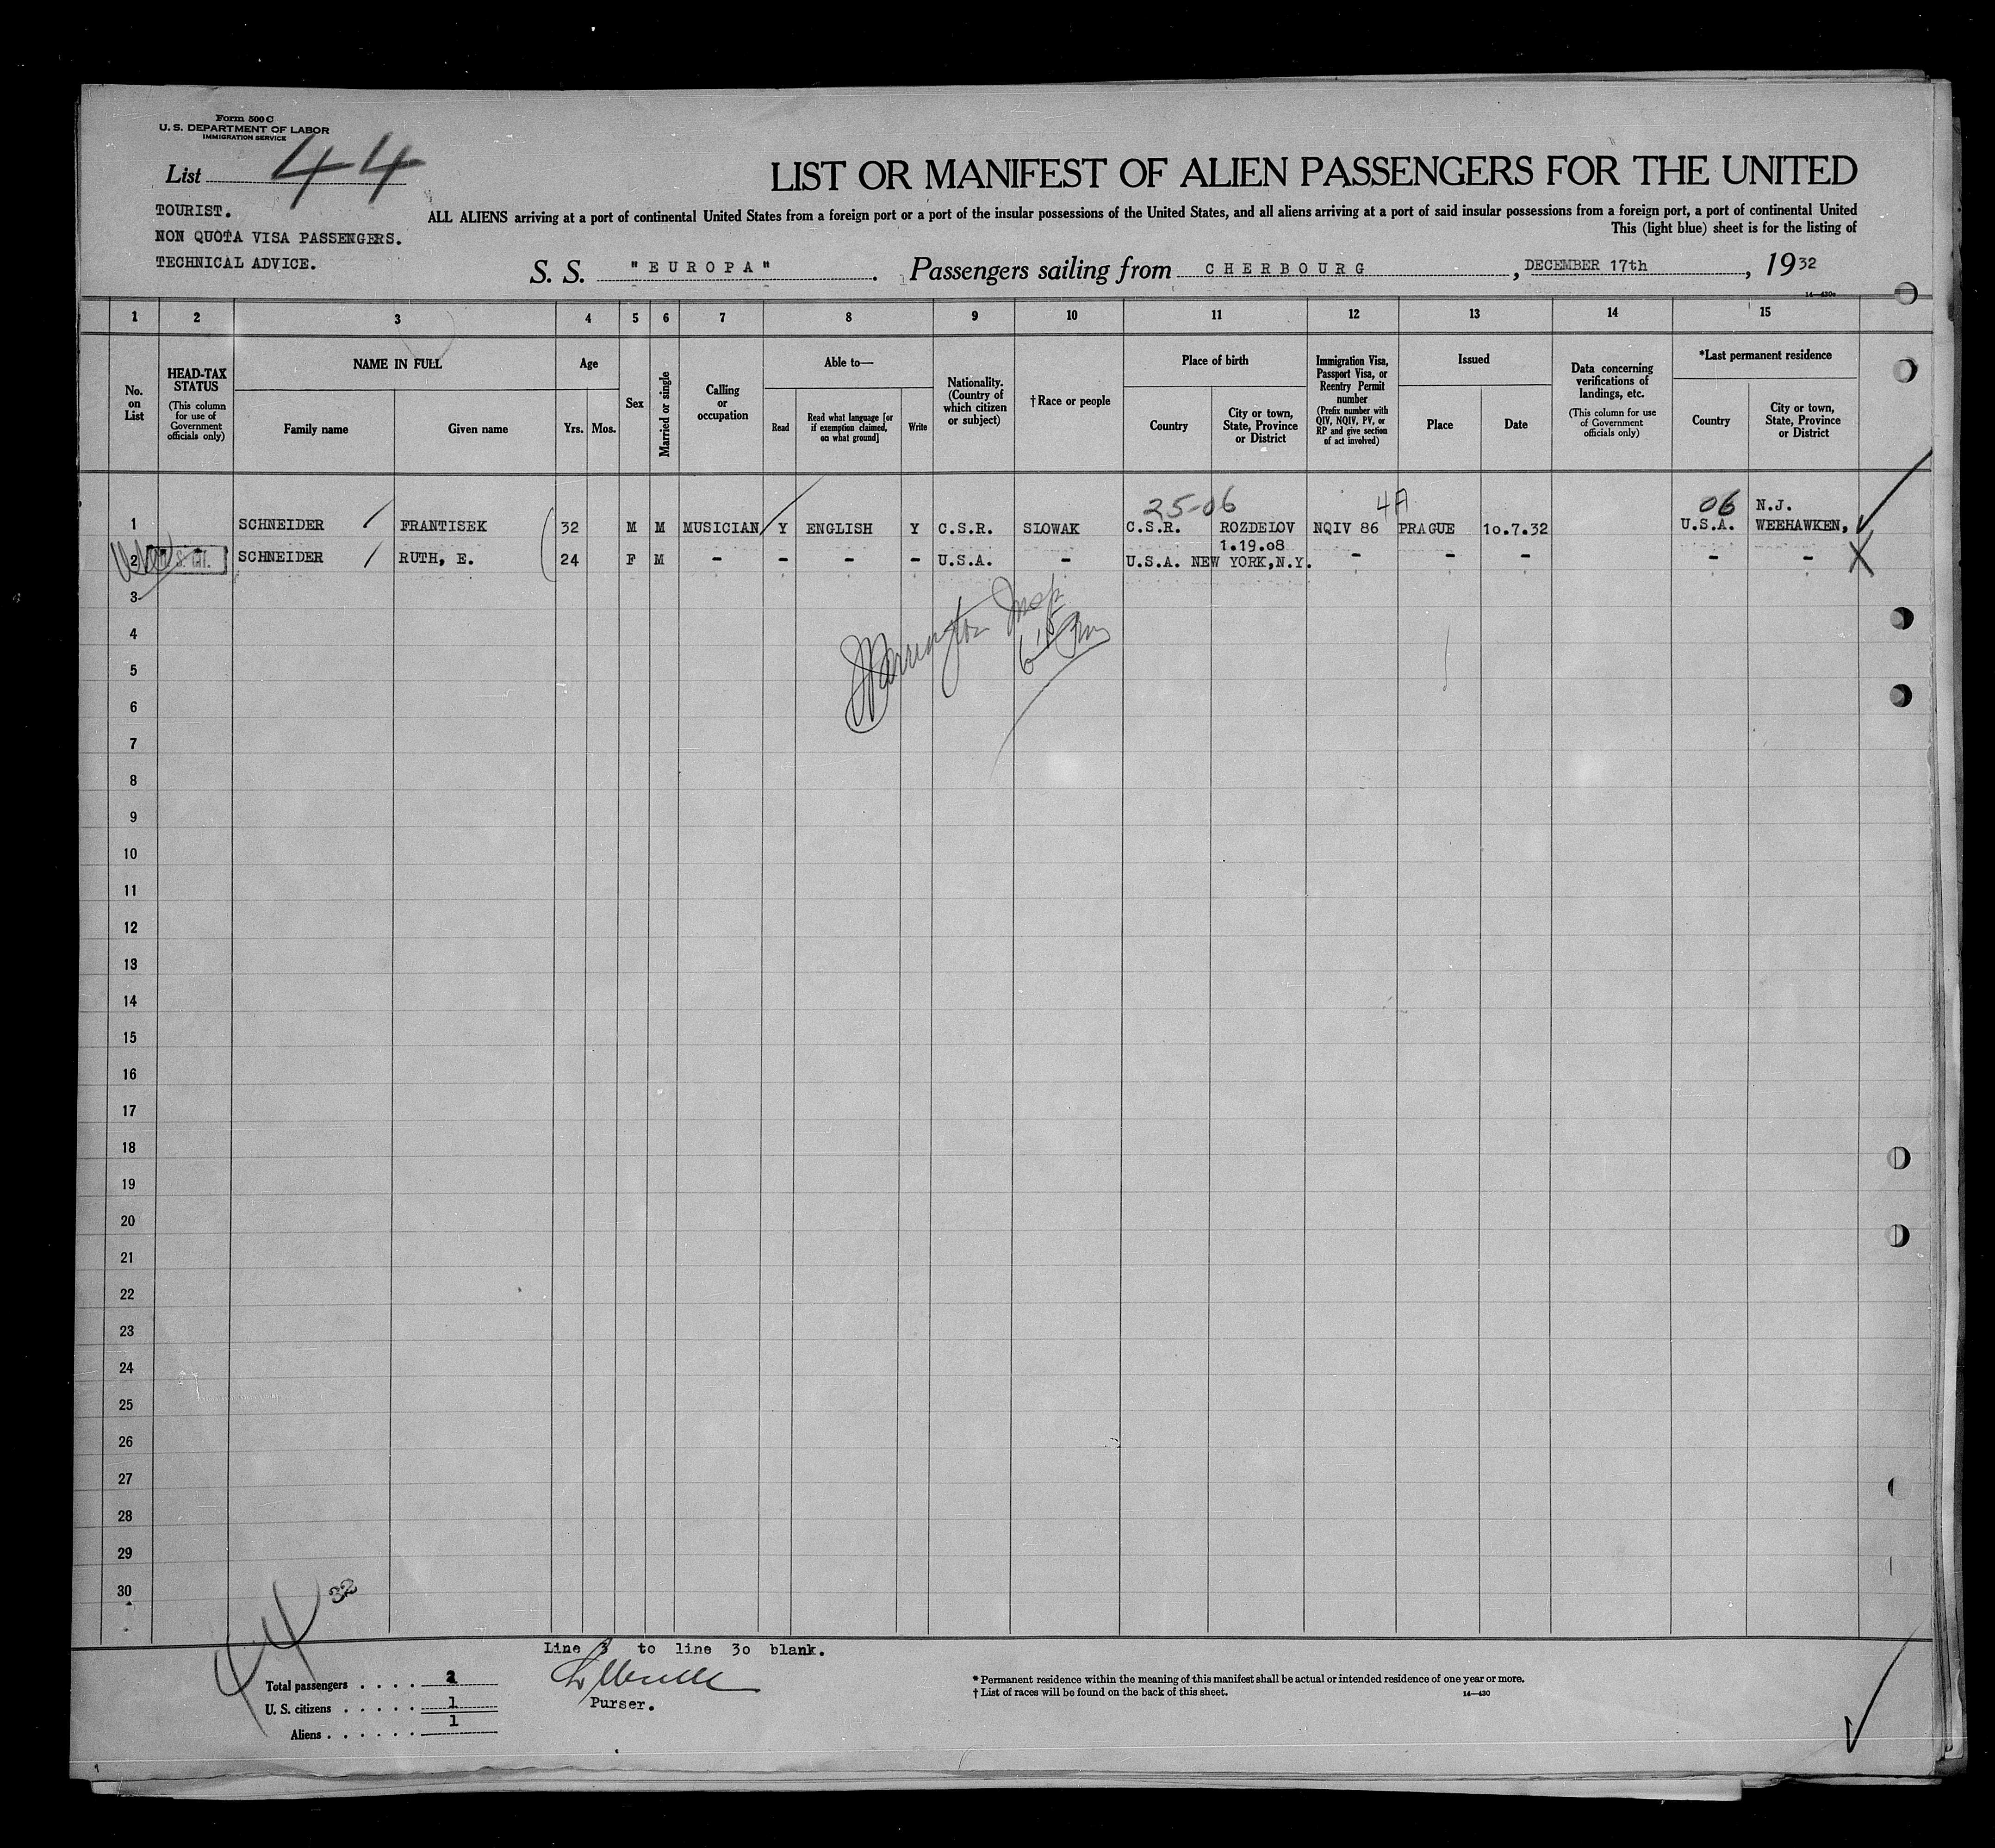 Form 500 C
U. S. DEPARTMENT OF LABOR
IMMIGRATION SERVICE
List 44
LIST OR MANIFEST OF ALIEN PASSENGERS FOR THE UNITED
TOURIST.
NON QUOTA VISA PASSENGERS.
TECHNICAL ADVICE.
ALL ALIENS arriving at a port of continental United States from a foreign port or a port of the insular possessions of the United States, and all aliens arriving at a port of said insular possessions from a foreign port, a port of continental United
This (light blue) sheet is for the listing of
S. S. "EUROPA". Passengers sailing from CHERBOURG, DECEMBER 17th, 1932
14—430c
1 2 3 4 5 6 7 8 9 10 11 12 13 14 15
No. on List
HEAD-TAX STATUS
(This column for use of Government officials only)
NAME IN FULL
Family name
Given name
Age
Yrs. Mos.
Sex
Married or single
Calling or occupation
Able to—
Read
Read what language [or if exemption claimed, on what ground]
Write
Nationality. (Country of which citizen or subject)
†Race or people
Place of birth
Country
City or town, State, Province or District
Immigration Visa, Passport Visa, or Reentry Permit number
(Prefix number with QIV, NQIV, PV, or RP and give section of act involved)
Issued
Place
Date
Data concerning verifications of landings, etc.
(This column for use of Government officials only)
*Last permanent residence
Country
City or town, State, Province or District
25-06 4A 06 N.J.
1 SCHNEIDER FRANTISEK 32 M M MUSICIAN Y ENGLISH Y C.S.R. SLOWAK C.S.R. ROZDELOV NQIV 86 PRAGUE 10.7.32 U.S.A. WEEHAWKEN,
1.19.08
2 SCHNEIDER RUTH, E. 24 F M - - - - U.S.A. - U.S.A. NEW YORK,N.Y. - - - - -
3
4
5
6
7
8
9
10
11
12
13
14
15
16
17
18
19
20
21
22
23
24
25
26
27
28
29
30
32
44
Line 3 to line 30 blank.
Purser.
Total passengers . . . . 2
U. S. citizens . . . . . 1
Aliens . . . . . . 1
* Permanent residence within the meaning of this manifest shall be actual or intended residence of one year or more.
† List of races will be found on the back of this sheet.
14—430